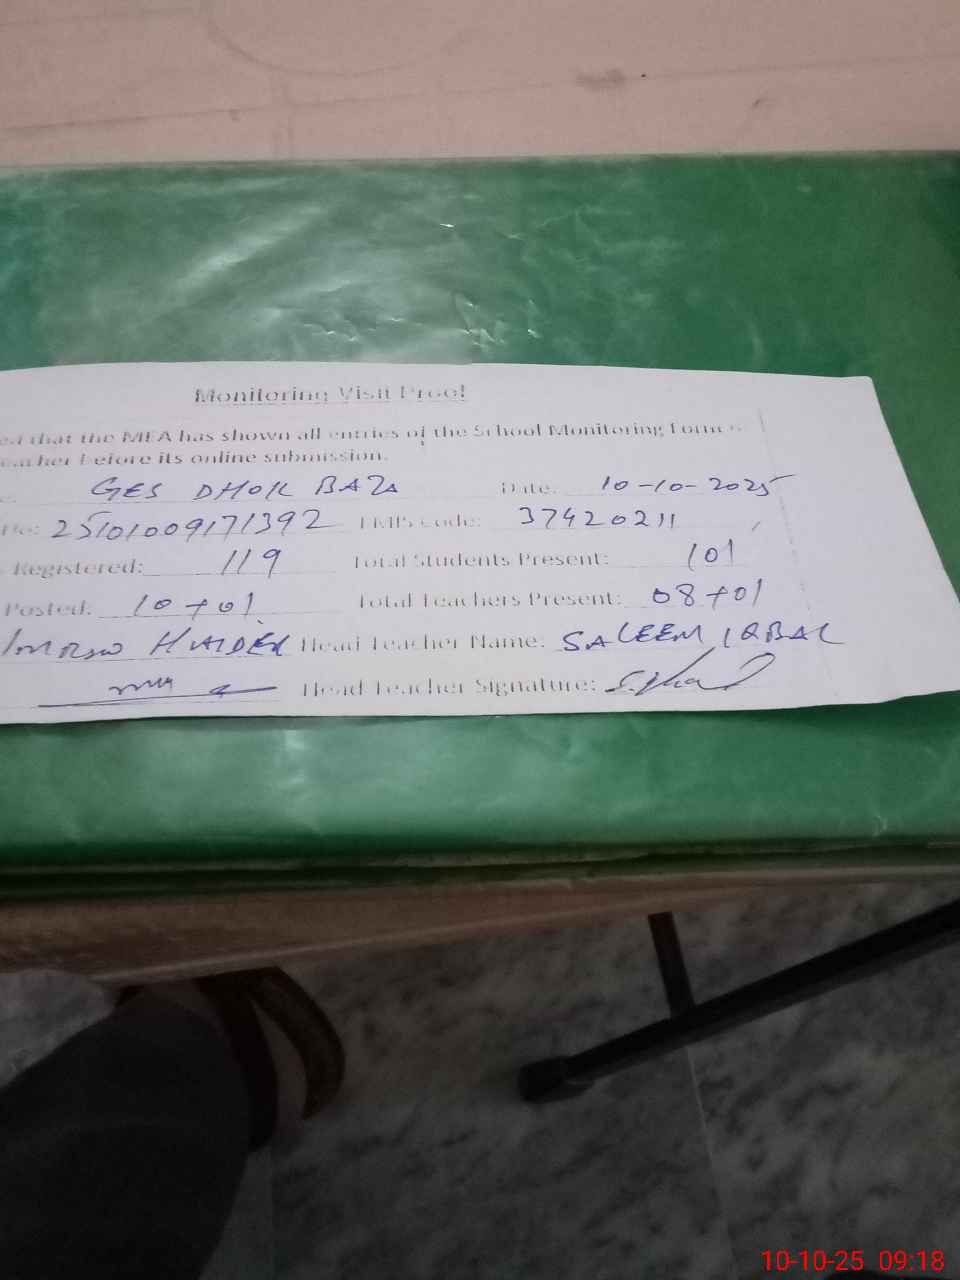 Monitoring Visit Proof
that the MEA has shown all entries of the School Monitoring Form
before its online submission.
GES DHOK BAZA Date: 10-10-2025
No: 25101009171392 EMIS Code: 37420211
Registered: 119 Total Students Present: 101
Posted: 10+01 Total Teachers Present: 08+01
HAIDER Head Teacher Name: SALEEM IQBAL
Head Teacher Signature:
10-10-25 09:18